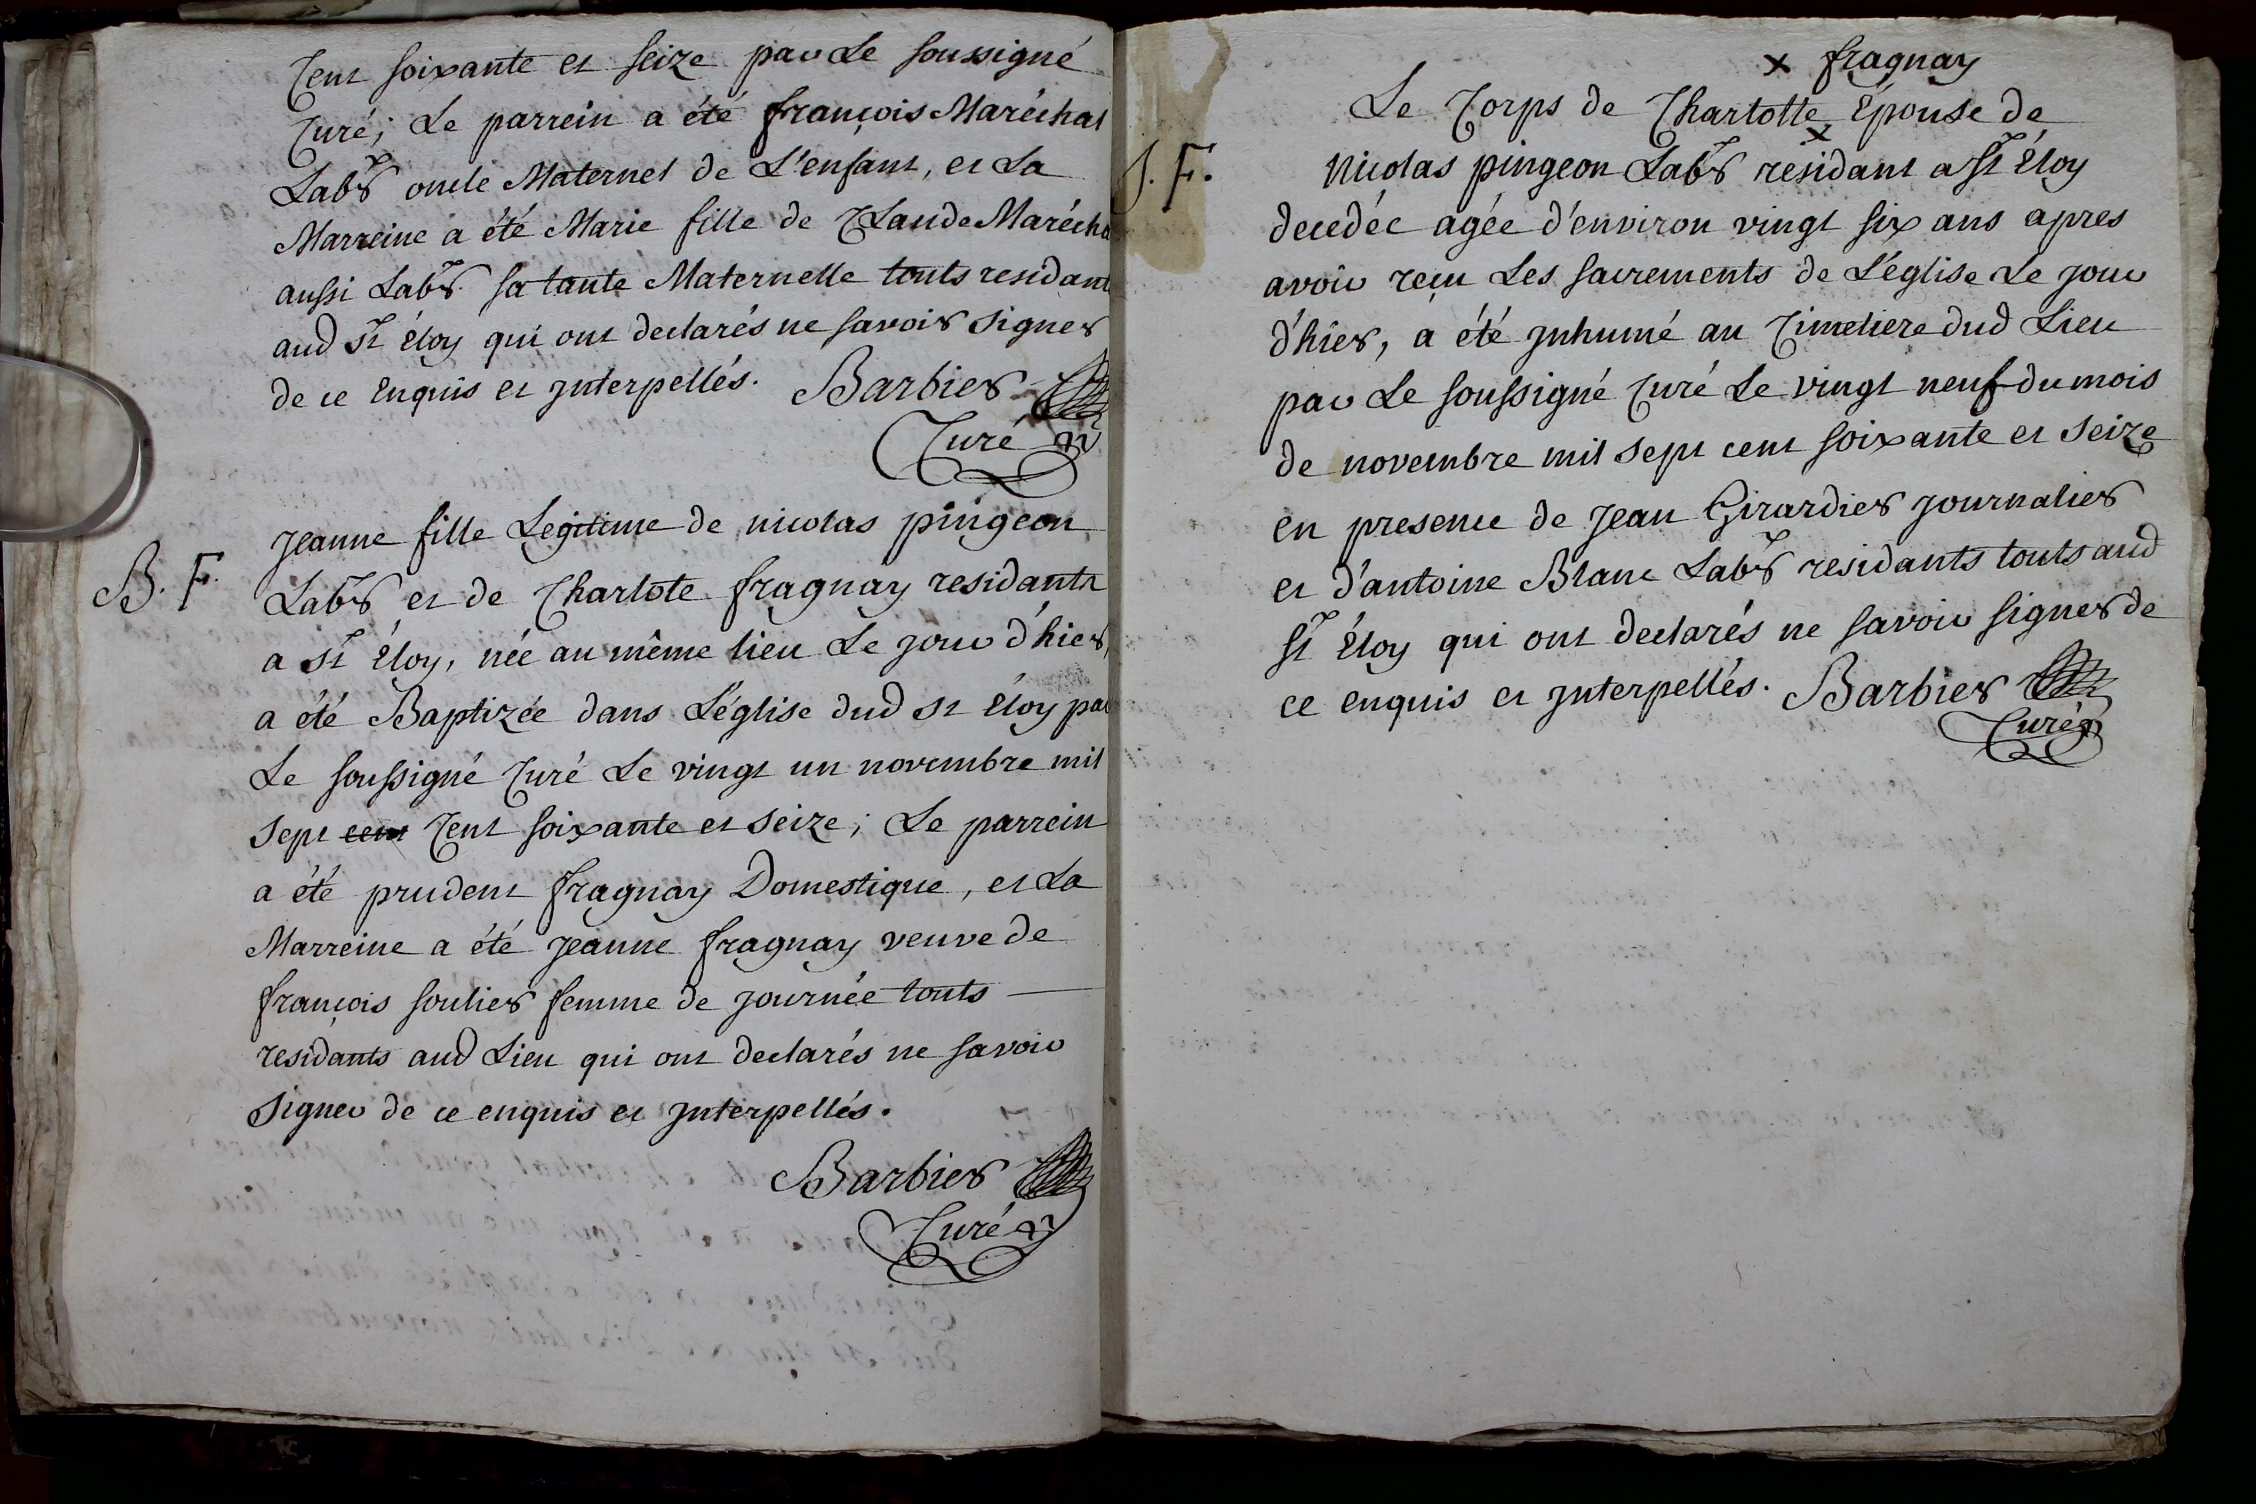 Cent soixante et seize par Le soussigné
Curé; Le parrein a été françois Maréchal
Labr oncle Maternel de L'enfant, et La
Marreine a été Marie fille de Claude Marécha
aussi Labr. sa tante Maternelle touts resident
aud St Éloy qui ont declarés ne savoir signer
de ce Enquis et Interpellés. Barbier
Curé
B. F. Jeanne fille Legitime de nicolas pingeon
Labr et de Charlote fragnay residants
a St Éloy, née au même lieu Le jour d'hier,
a été Baptizée dans L'église dud St Éloy par
Le soussigné Curé Le vingt un novembre mil
sept cent Cent soixante et seize; Le parrein
a été prudent fragnay Domestique, et La
Marreine a été Jeanne fragnay veuve de
françois soulier femme de journée touts
residants aud Lieu qui ont declarés ne savoir
signer de ce enquis et Interpellés.
Barbier
Curé
x fragnay
Le Corps de Charlotte x Épouse de
S. F. Nicolas pingeon Labr residant a St Éloy
decedée agée d'environ vingt six ans apres
avoir reçu Les sacrements de L'église Le jour
d'hier, a été Inhumé au Cimetiere dud Lieu
par Le soussigné Curé Le vingt neuf du mois
de novembre mil sept cent soixante et seize
en presence de Jean Girardier journalier
et d'antoine Blanc Labr residants touts aud
St Éloy qui ont declarés ne savoir signer de
ce enquis et Interpellés. Barbier
Curé